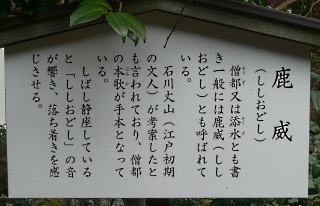 鹿威
(ししおどし)
僧都又は添水とも書
き一般には鹿威(しし
おどし)とも呼ばれて
いる。
石川丈山(江戸初期
の文人)が考案したと
も言われており、僧都
の本歌が手本となって
いる。
しばし静座している
と「ししおどし」の音
が響き、落ち着きを感
じさせる。